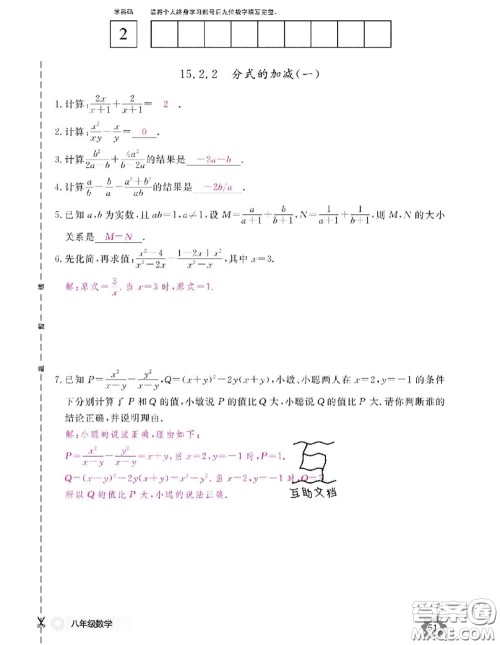 学科码 请将个人终身学习账号后九位数字填写完整。
2
15.2.2 分式的加减(一)
1. 计算:2x/(x+1)+2/(x+1)= 2 .
2. 计算:x²/xy-x/y= 0 .
3. 计算b²/(2a-b)+4a²/(b-2a)的结果是 -2a-b .
4. 计算a/b-b/a-(a²+b²)/ab的结果是 -2b/a .
5. 已知a,b为实数,且ab=1,a≠1,设M=a/(a+1)+b/(b+1),N=1/(a+1)+1/(b+1),则M,N的大小
关系是 M=N .
6. 先化简,再求值:(x²-4)/(x²-2x)-(1-2x+x²)/(x²-x),其中x=3.
解:原式=3/x.当x=3时,原式=1.
7. 已知P=x²/(x-y)-y²/(x-y),Q=(x+y)²-2y(x+y),小敏、小聪两人在x=2,y=-1的条件
下分别计算了P和Q的值,小敏说P的值比Q大,小聪说Q的值比P大.请你判断谁的
结论正确,并说明理由.
解:小聪的说法正确,理由如下:
P=x²/(x-y)-y²/(x-y)=x+y,当x=2,y=-1时,P=1.
Q=(x+y)²-2y(x+y)=x²-y²,当x=2,y=-1时,Q=3.
所以Q的值比P大,小聪的说法正确.
互助文档
八年级数学
51